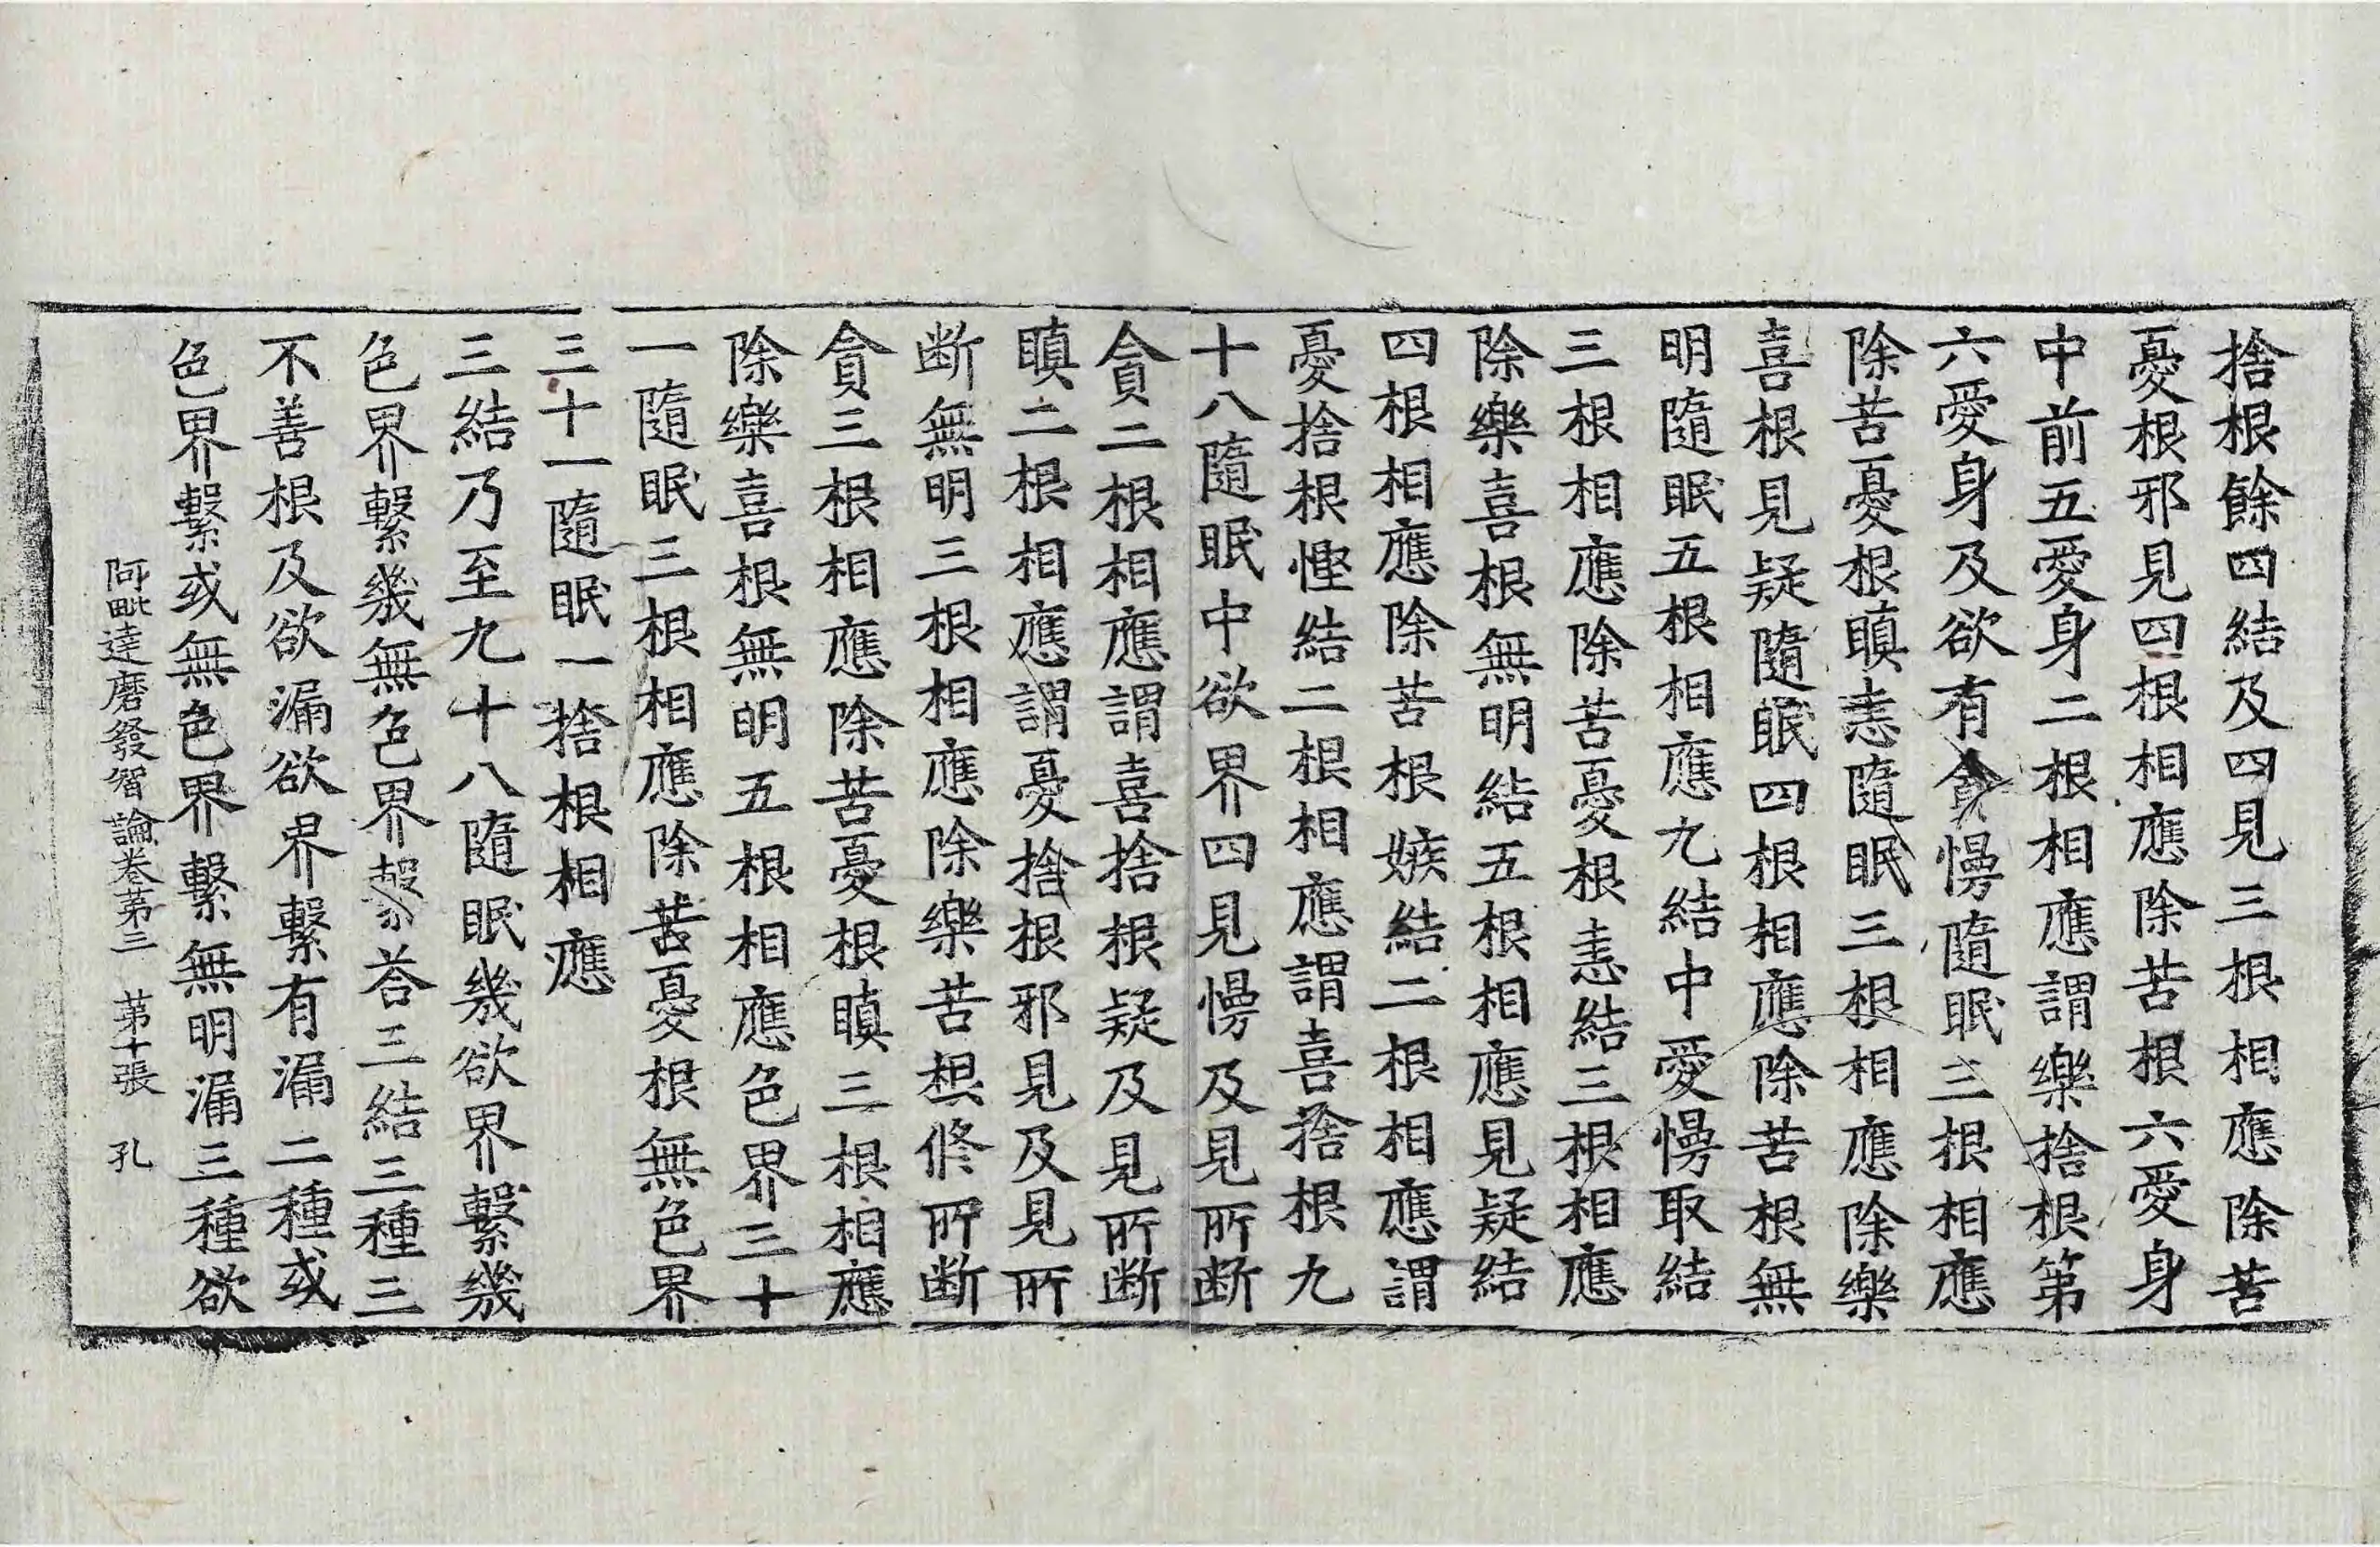 捨根餘四結及四見三根相應除苦
憂根邪見四根相應除苦根六愛身
中前五愛身二根相應謂樂捨根第
六愛身及欲有貪慢隨眠三根相應
除苦憂根瞋恚隨眠三根相應除樂
喜根見疑隨眠四根相應除苦根無
明隨眠五根相應九結中愛慢取結
三根相應除苦憂根恚結三根相應
除樂喜根無明結五根相應見疑結
四根相應除苦根嫉結二根相應謂
憂捨根慳結二根相應謂喜捨根九
十八隨眠中欲界四見慢及見所斷
貪二根相應謂喜捨根疑及見所斷
瞋二根相應謂憂捨根邪見及見所
斷無明三根相應除樂苦根修所斷
貪三根相應除苦憂根瞋三根相應
除樂喜根無明五根相應色界三十
一隨眠三根相應除苦憂根無色界
三十一隨眠一捨根相應
三結乃至九十八隨眠幾欲界繫幾
色界繫幾無色界繫答三結三種三
不善根及欲漏欲界繫有漏二種或
色界繫或無色界繫無明漏三種欲
阿毗達磨發智論卷第三 第十張 孔